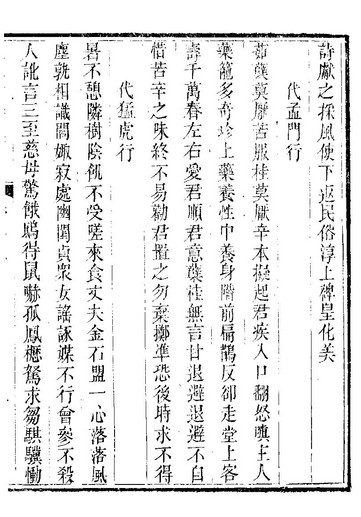 詩獻之採風使下返民俗淳上裨皇化美
代孟門行
茹蘗莫厭苦服桂莫厭辛本擬起君疾入口翻怒嗔主人
藥籠多奇珍上藥養性中養身階前扁鵲反卻走堂上客
壽千萬春左右愛君順君意蘗桂無言甘退避退避不自
惜苦辛之味終不易勸君置之勿棄擲準恐後時求不得
代猛虎行
暑不憩隣樹陰飢不受嗟來食丈夫金石盟一心落落風
塵孰相識閻娵寂處幽閨貞衆女謠諑媒不行曾參不殺
人訛言三至慈母驚餓鴟得鼠嚇孤鳳櫪駑求芻騏驥慟